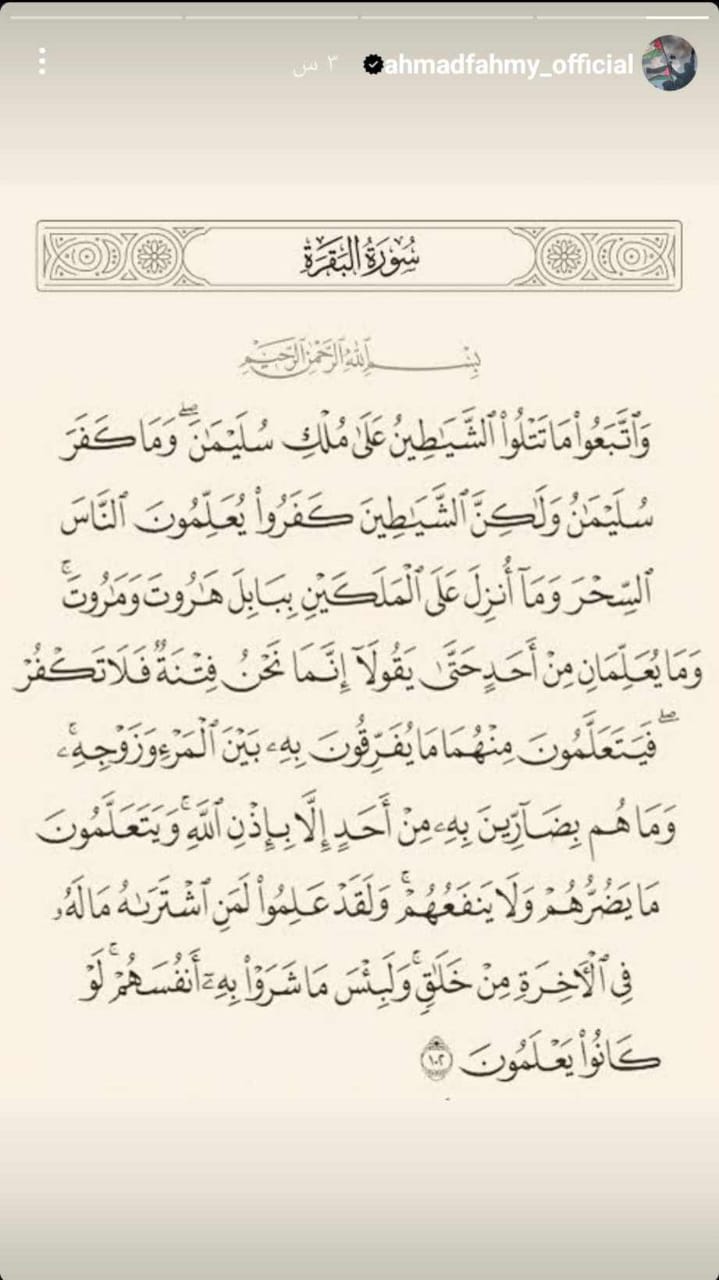 ahmadfahmy_official ٣ س
سُورَةُ البَقَرَةِ
بِسْمِ ٱللَّهِ ٱلرَّحْمَٰنِ ٱلرَّحِيمِ
وَٱتَّبَعُوا۟ مَا تَتْلُوا۟ ٱلشَّيَٰطِينُ عَلَىٰ مُلْكِ سُلَيْمَٰنَ ۖ وَمَا كَفَرَ
سُلَيْمَٰنُ وَلَٰكِنَّ ٱلشَّيَٰطِينَ كَفَرُوا۟ يُعَلِّمُونَ ٱلنَّاسَ
ٱلسِّحْرَ وَمَآ أُنزِلَ عَلَى ٱلْمَلَكَيْنِ بِبَابِلَ هَٰرُوتَ وَمَٰرُوتَ ۚ
وَمَا يُعَلِّمَانِ مِنْ أَحَدٍ حَتَّىٰ يَقُولَآ إِنَّمَا نَحْنُ فِتْنَةٌ فَلَا تَكْفُرْ
ۖ فَيَتَعَلَّمُونَ مِنْهُمَا مَا يُفَرِّقُونَ بِهِۦ بَيْنَ ٱلْمَرْءِ وَزَوْجِهِۦ ۚ
وَمَا هُم بِضَآرِّينَ بِهِۦ مِنْ أَحَدٍ إِلَّا بِإِذْنِ ٱللَّهِ ۚ وَيَتَعَلَّمُونَ
مَا يَضُرُّهُمْ وَلَا يَنفَعُهُمْ ۚ وَلَقَدْ عَلِمُوا۟ لَمَنِ ٱشْتَرَىٰهُ مَا لَهُۥ
فِى ٱلْـَٔاخِرَةِ مِنْ خَلَٰقٍ ۚ وَلَبِئْسَ مَا شَرَوْا۟ بِهِۦٓ أَنفُسَهُمْ ۚ لَوْ
كَانُوا۟ يَعْلَمُونَ ١٠٢